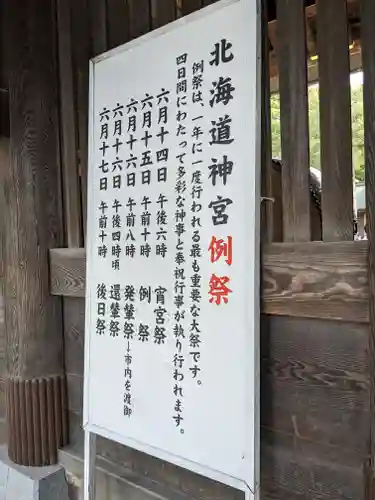 北海道神宮例祭
例祭は、一年に一度行われる最も重要な大祭です。
四日間にわたって多彩な神事と奉祝行事が執り行われます。
六月十四日 午後六時 宵宮祭
六月十五日 午前十時 例祭
六月十六日 午前八時 発輦祭→市内を渡御
六月十六日 午後四時頃 還輦祭
六月十七日 午前十時 後日祭